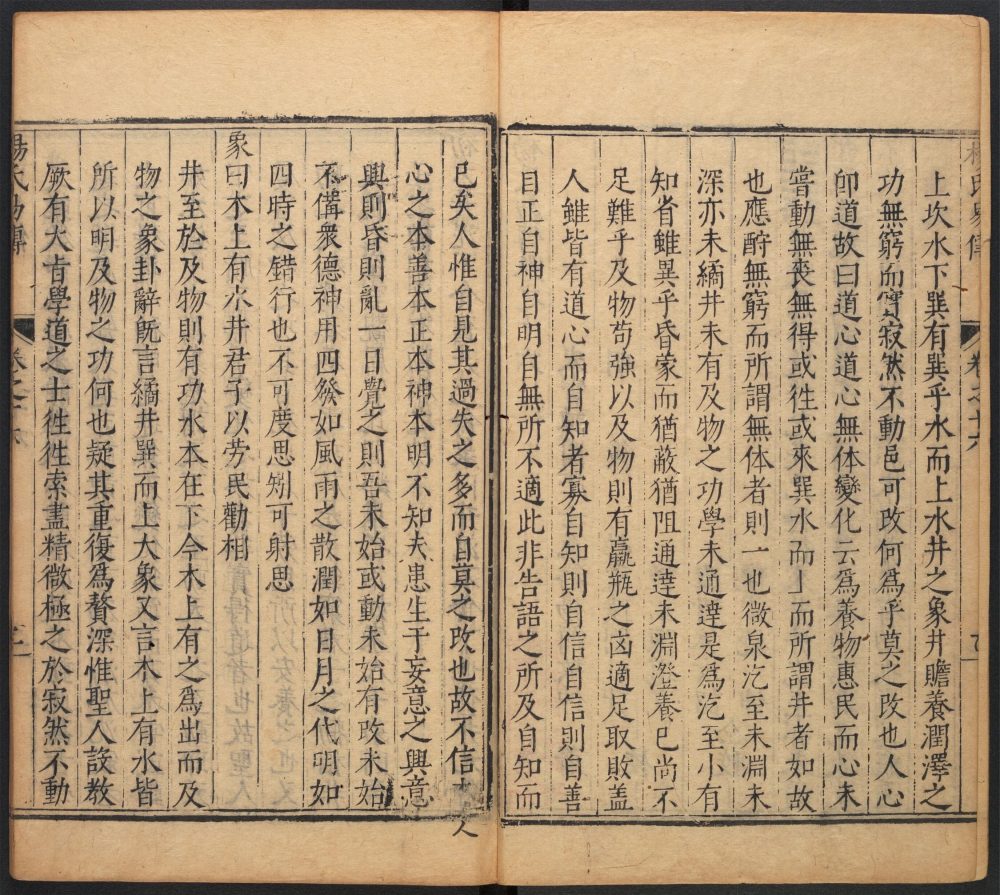 楊氏易傳
卷之十六
上坎水下巽有巽乎水而上水井之象井贍養潤澤之
功無窮而實寂然不動邑可改何爲乎莫之改也人心
卽道故曰道心道心無体變化云爲養物惠民而心未
嘗動無喪無得或徃或來巽水而上而所謂井者如故
也應酧無窮而所謂無体者則一也微泉汔至未淵未
深亦未繘井未有及物之功學未通達是爲汔至小有
知省雖異乎昏蒙而猶蔽猶阻通達未淵澄養已尚不
足難乎及物茍強以及物則有羸瓶之凶適足取敗盖
人雖皆有道心而自知者寡自知則自信自信則自善
目正自神自明自無所不適此非告語之所及自知而
已矣人惟自見其過失之多而自莫之改也故不信人
心之本善本正本神本明不知夫患生于妄意之興意
興則昏則亂一日覺之則吾未始或動未始有改未始
不備衆德神用四發如風雨之散潤如日月之代明如
四時之錯行也不可度思矧可射思
象曰木上有水井君子以劳民勸相
井至於及物則有功水本在下今木上有之爲出而及
物之象卦辭旣言繘井巽而上大象又言木上有水皆
所以明及物之功何也疑其重復爲贅深惟聖人設教
厥有大肯學道之士徃徃索盡精微極之於寂然不動
楊氏易傳
卷之十六